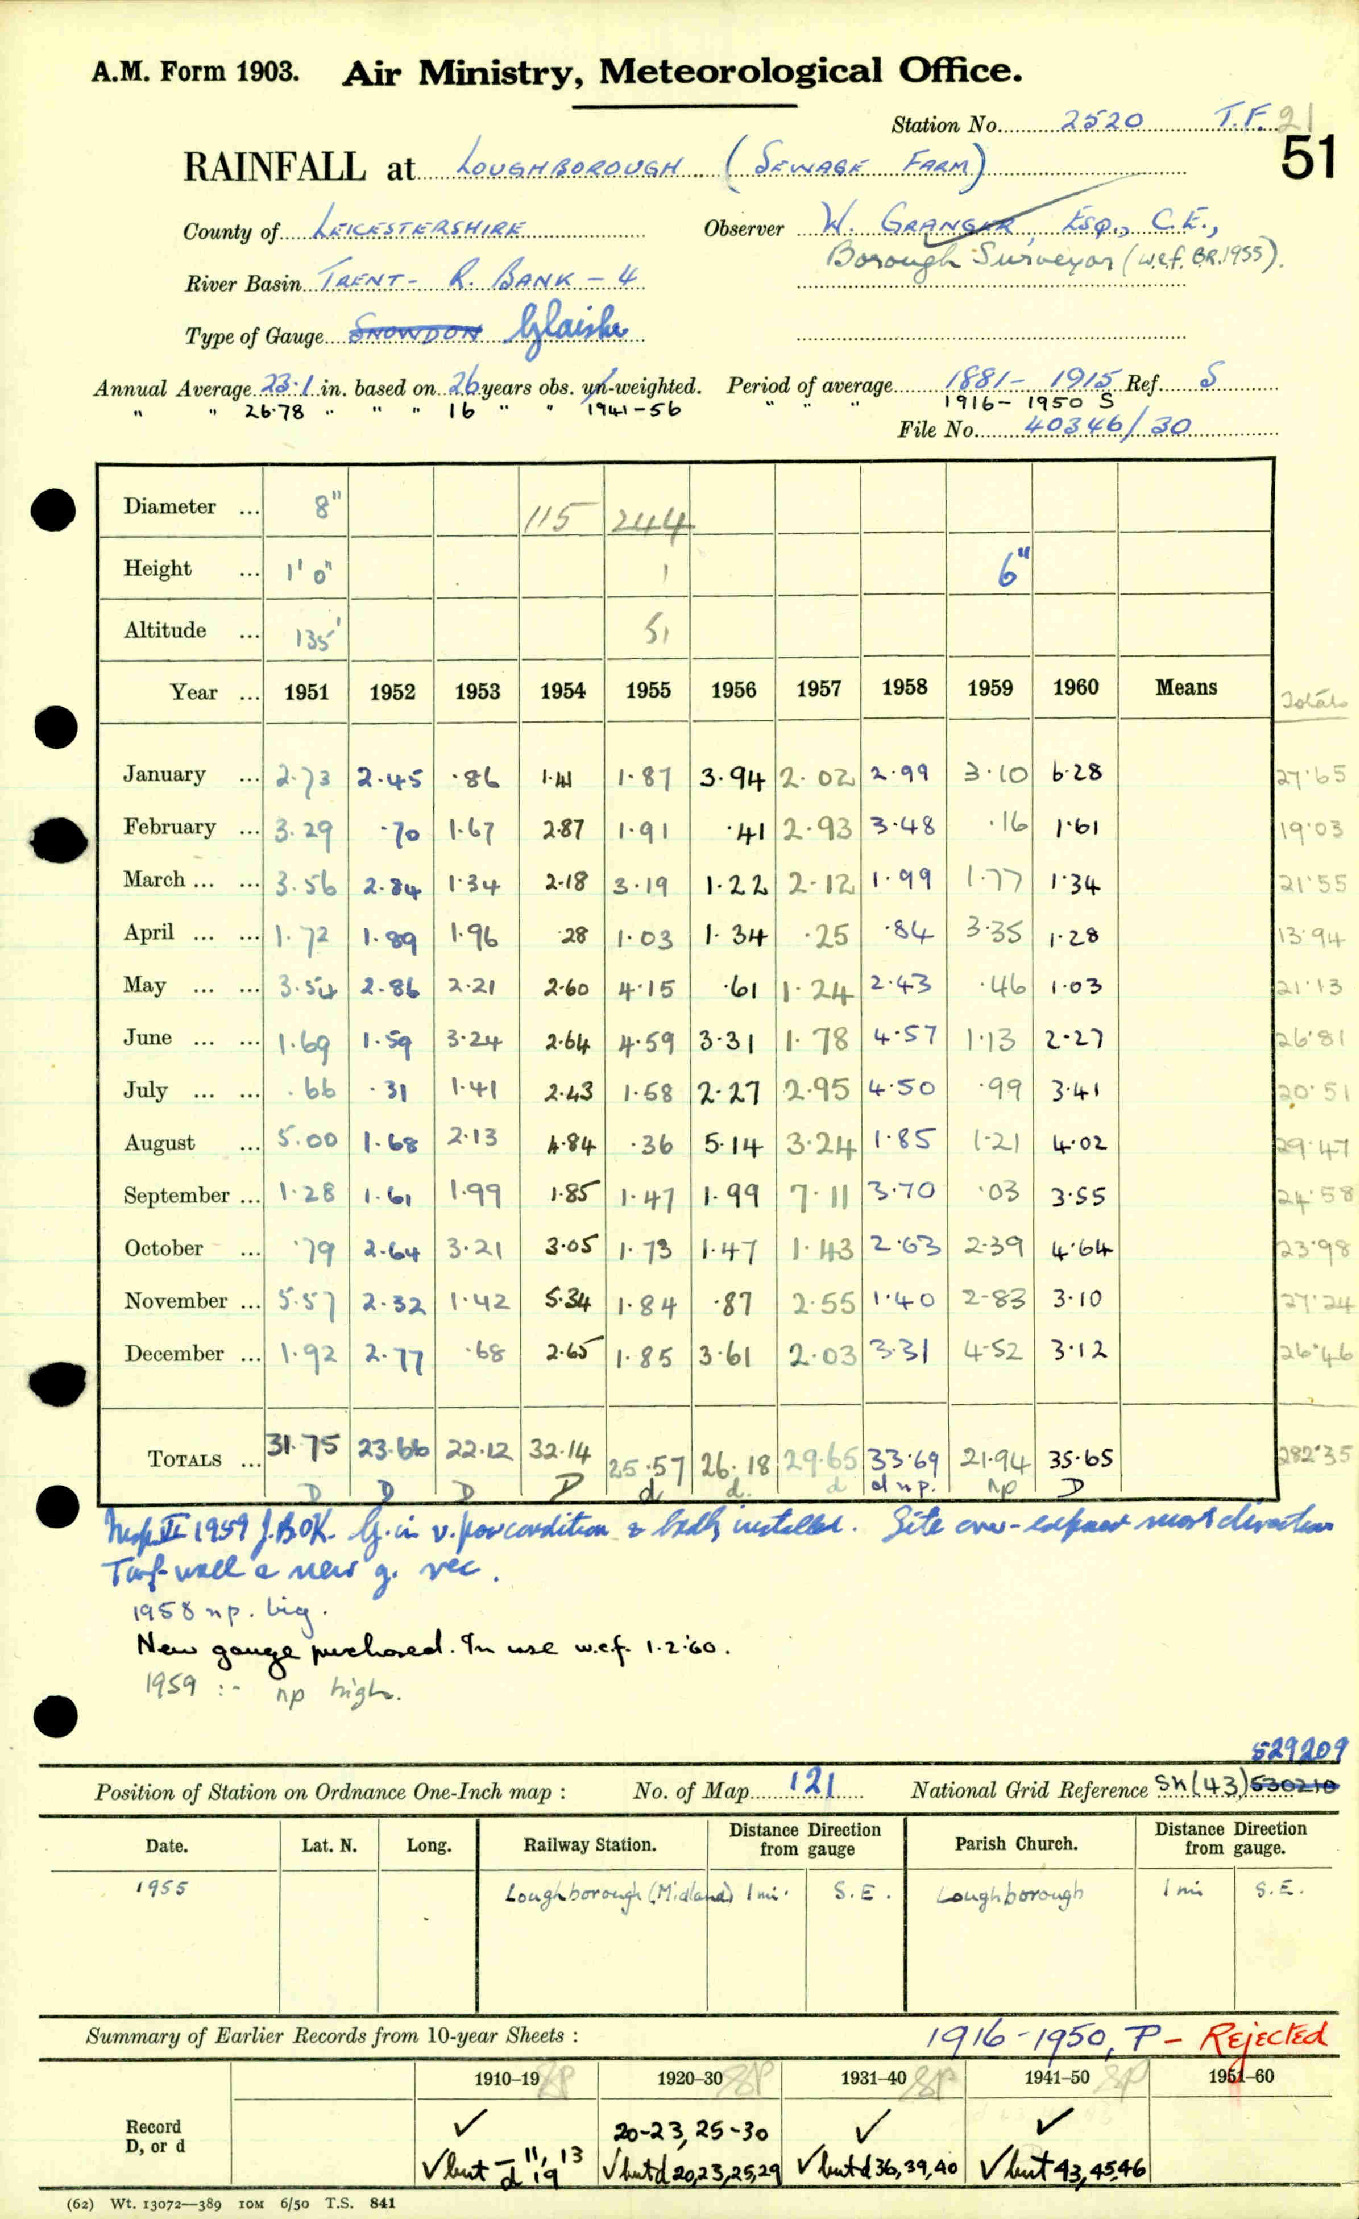 A.M. Form 1903. Air Ministry, Meteorological Office.
Station No. 2520 T.F. 21
51
RAINFALL at LOUGHBOROUGH (SEWAGE FARM)
County of LEICESTERSHIRE Observer W. GRANGER, ESQ., C.E.,
Borough Surveyor (w.e.f. BR. 1955).
River Basin TRENT - R. BANK - 4
Type of Gauge SNOWDON Glaisher
Annual Average 23.1 in. based on 26 years obs. un-weighted. Period of average 1881 - 1915 Ref. S
" " 26.78 " " " 16 " " 1941-56 " " " 1916 - 1950 S
File No. 40346/30
Diameter ... 8" 115 244
Height ... 1' 0" 1 6"
Altitude ... 135' 51
Year ... 1951 1952 1953 1954 1955 1956 1957 1958 1959 1960 Means Totals
January ... 2.73 2.45 .86 1.41 1.87 3.94 2.02 2.99 3.10 6.28 27.65
February ... 3.29 .70 1.67 2.87 1.91 .41 2.93 3.48 .16 1.61 19.03
March ... ... 3.56 2.84 1.34 2.18 3.19 1.22 2.12 1.99 1.77 1.34 21.55
April ... ... 1.72 1.89 1.96 .28 1.03 1.34 .25 .84 3.35 1.28 13.94
May ... ... 3.54 2.86 2.21 2.60 4.15 .61 1.24 2.43 .46 1.03 21.13
June ... ... 1.69 1.59 3.24 2.64 4.59 3.31 1.78 4.57 1.13 2.27 26.81
July ... ... .66 .31 1.41 2.43 1.58 2.27 2.95 4.50 .99 3.41 20.51
August ... 5.00 1.68 2.13 4.84 .36 5.14 3.24 1.85 1.21 4.02 29.47
September ... 1.28 1.61 1.99 1.85 1.47 1.99 7.11 3.70 .03 3.55 24.58
October ... .79 2.64 3.21 3.05 1.73 1.47 1.43 2.63 2.39 4.64 23.98
November ... 5.57 2.32 1.42 5.34 1.84 .87 2.55 1.40 2.83 3.10 27.24
December ... 1.92 2.77 .68 2.65 1.85 3.61 2.03 3.31 4.52 3.12 26.46
TOTALS ... 31.75 23.66 22.12 32.14 25.57 26.18 29.65 33.69 21.94 35.65 282.35
D D D D d d. d d n p. np D
Insp. II 1959 J.BOK. G. in v. poor condition & badly installed. Site over-exposed most directions
Turf-wall & new g. rec.
1958 n p. big.
New gauge purchased. In use w.e.f. 1.2.60.
1959 :- np high.
529209
Position of Station on Ordnance One-Inch map : No. of Map 121 National Grid Reference SK(43) 530210
Date. Lat. N. Long. Railway Station. Distance Direction from gauge Parish Church. Distance Direction from gauge.
1955 Loughborough (Midland) 1 mi. S.E. Loughborough 1 mi S.E.
Summary of Earlier Records from 10-year Sheets : 1916-1950, P - Rejected
1910–19 1920–30 1931–40 1941–50 1951–60
Record ✓ 20-23, 25-30 ✓ ✓
D, or d ✓ but - 11, 13 d 19 ✓ but d 20,23,25,29 ✓ but d 36,39,40 ✓ but 43,45,46
(62) Wt. 13072—389 10M 6/50 T.S. 841